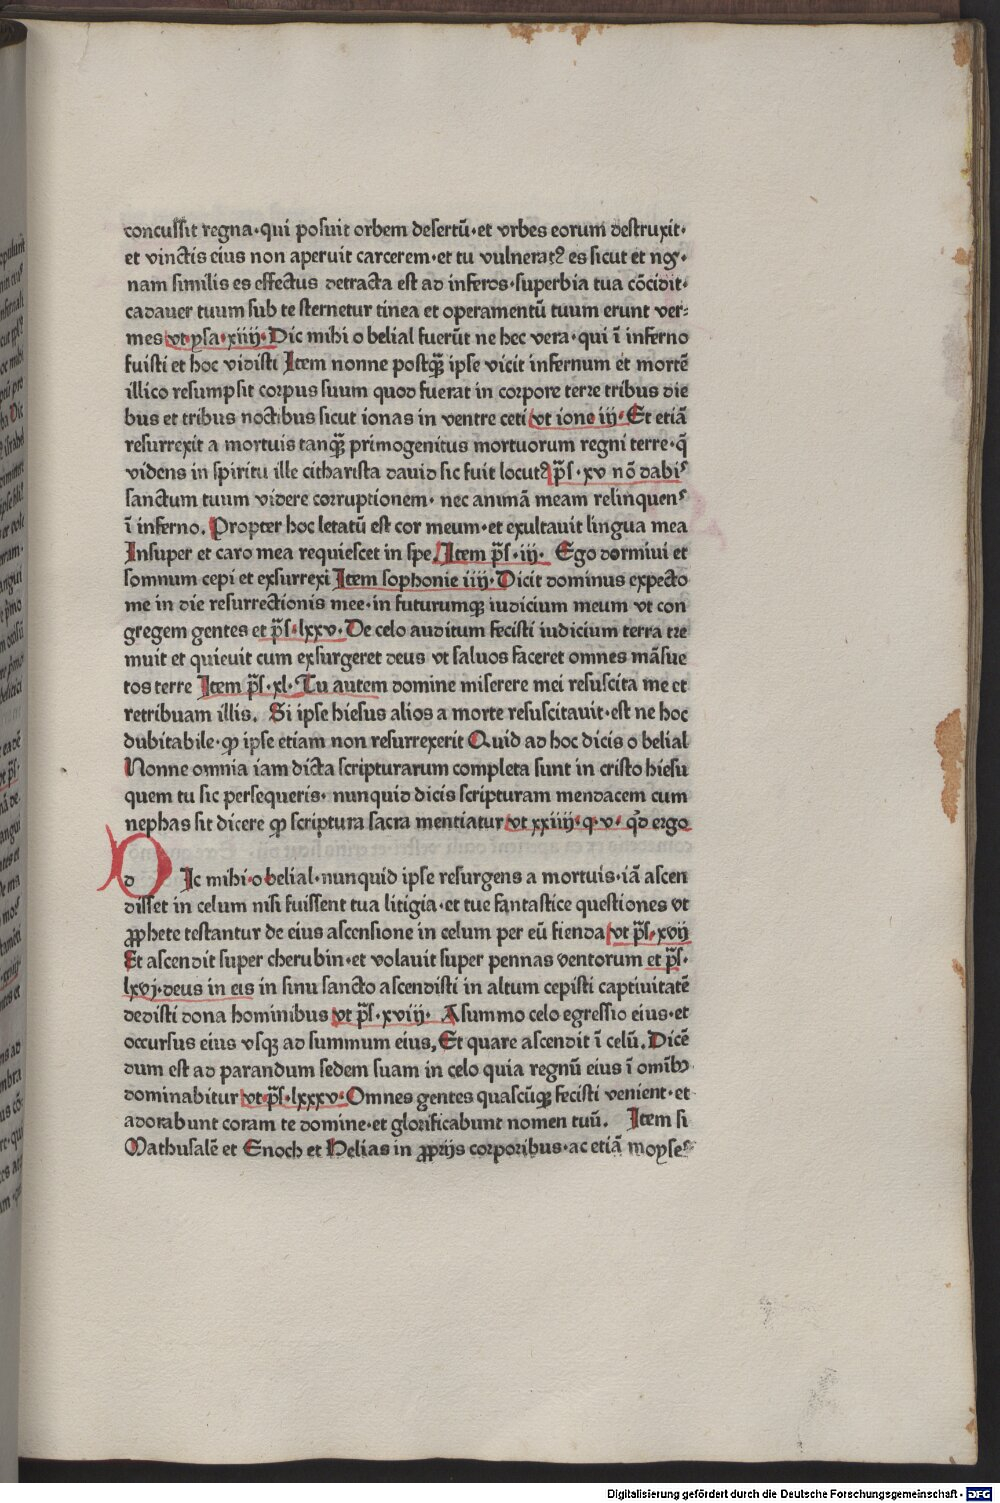 concussit regna·qui posuit orbem desertū·et vrbes eorum destruxit·
et vinctis eius non aperuit carcerem·et tu vulneratꝰ es sicut et nos·
nam similis es effectus detracta est ad inferos·superbia tua cōcidit·
cadauer tuum sub te sternetur tinea et operamentū tuum erunt ver⸗
mes vt ysa·xiiij·Dic mihi o belial fuerūt ne hec vera·qui ī inferno
fuisti et hoc vidisti Item nonne postqꝫ̄ ipse vicit infernum et mortē
illico resumpsit corpus suum quod fuerat in corpore terre tribus die
bus et tribus noctibus sicut ionas in ventre ceti vt ione ij·Et etiā
resurrexit a mortuis tanqꝫ̄ primogenitus mortuorum regni terre·q̄
videns in spiritu ille citharista dauid sic fuit locutꝰ p̄s·xv nō dabis
sanctum tuum videre corruptionem· nec animā meam relinquens
ī inferno. Propter hoc letatū est cor meum·et exultauit lingua mea
Insuper et caro mea requiescet in spe Item p̄s·iij· Ego dormiui et
somnum cepi et exsurrexi Item sophonie iiij·Dicit dominus expecto
me in die resurrectionis mee·in futurumqꝫ iudicium meum vt con
gregem gentes et p̄s·lxxv·De celo auditum fecisti iudicium terra tre
muit et quieuit cum exsurgeret deus vt saluos faceret omnes māsue
tos terre Item p̄s·xl·Tu autem domine miserere mei resuscita me et
retribuam illis. Si ipse hiesus alios a morte resuscitauit·est ne hoc
dubitabile·ꝙ ipse etiam non resurrexerit Quid ad hoc dicis o belial
Nonne omnia iam dicta scripturarum completa sunt in cristo hiesu
quem tu sic persequeris· nunquid dicis scripturam mendacem cum
nephas sit dicere ꝙ scriptura sacra mentiatur vt xxiiij·q·v· qd̄ ergo
D Ic mihi·o belial·nunquid ipse resurgens a mortuis·iā ascen
disset in celum nisi fuissent tua litigia·et tue fantastice questiones vt
ꝓphete testantur de eius ascensione in celum per eū fienda vt p̄s·xvij
Et ascendit super cherubin·et volauit super pennas ventorum et p̄s·
lxvj·deus in eis in sinu sancto ascendisti in altum cepisti captiuitatē
dedisti dona hominibus vt p̄s·xviij· A summo celo egressio eius·et
occursus eius vsqꝫ ad summum eius, Et quare ascendit ī celū. Dicē
dum est ad parandum sedem suam in celo quia regnū eius ī omībꝰ
dominabitur vt p̄s·lxxxv·Omnes gentes quascūqꝫ fecisti venient·et
adorabunt coram te domine·et glorificabunt nomen tuū. Item si
Mathusalē et Enoch et Helias in ꝓprijs corporibus·ac etiā moyses
Digitalisierung gefördert durch die Deutsche Forschungsgemeinschaft - DFG